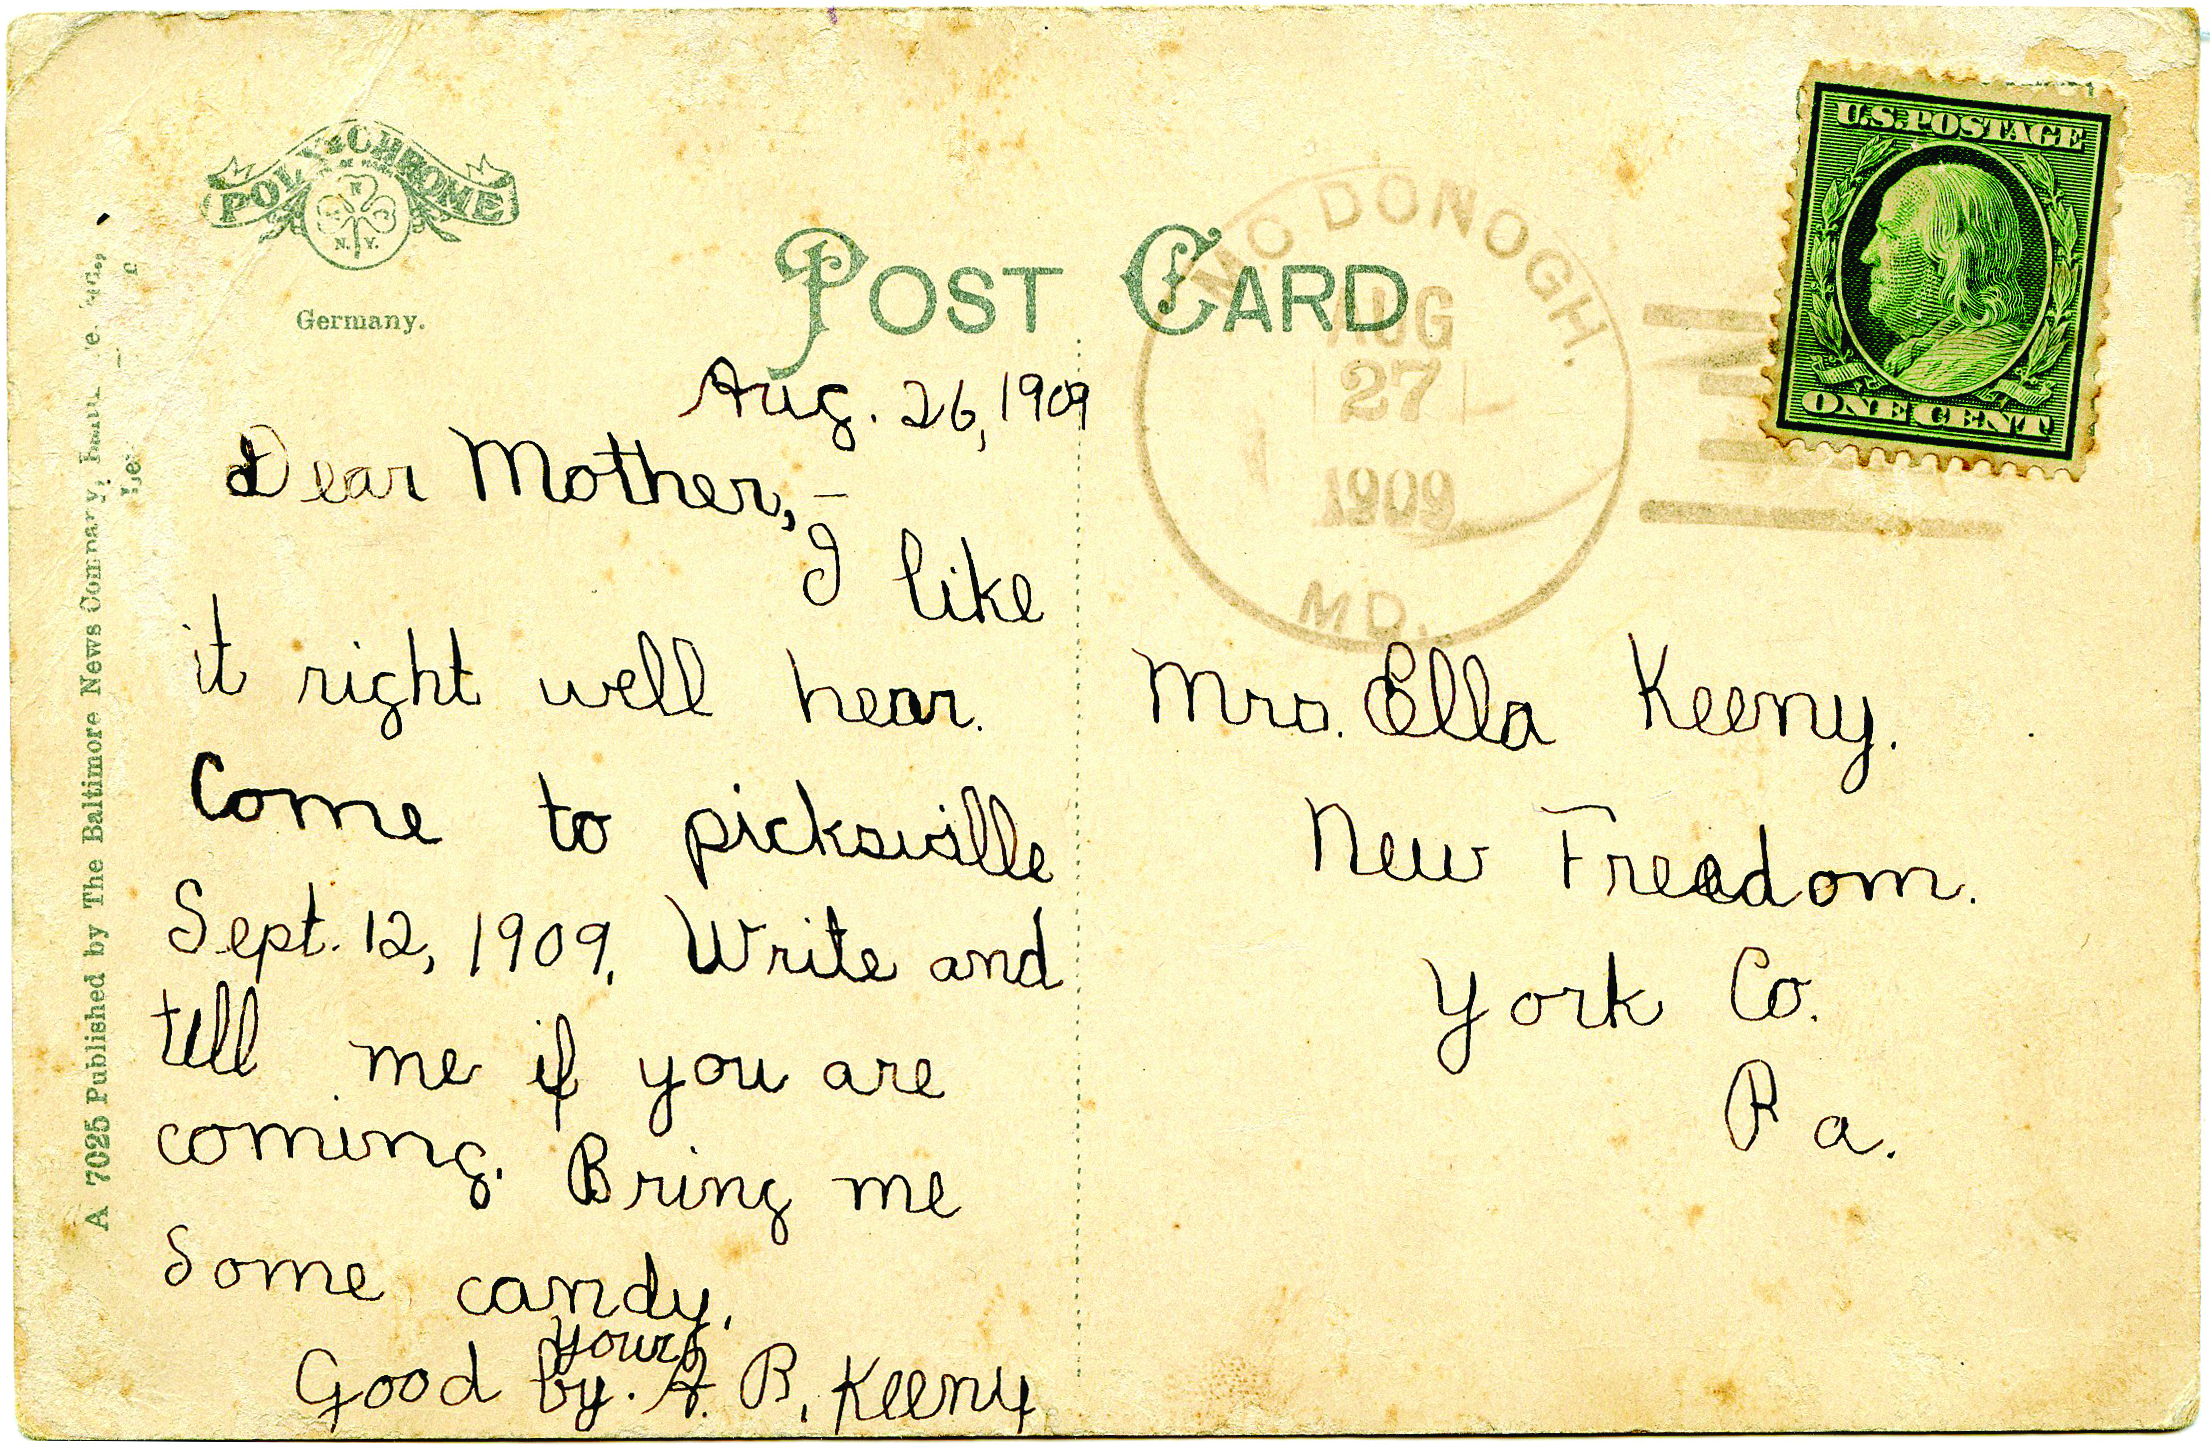 POLY-CHROME
N. Y.
Germany.
POST CARD
U.S. POSTAGE
ONE CENT
MC DONOGH.
AUG
27
1909
MD.
A 7025 Published by The Baltimore News Company,
Aug. 26, 1909
Dear Mother,—
I like
it right well hear.
Come to picksville
Sept. 12, 1909. Write and
tell me if you are
coming. Bring me
Some candy.
yours
Good by. A. B. Keeny
Mrs. Ella Keeny.
New Freedom.
York Co.
Pa.